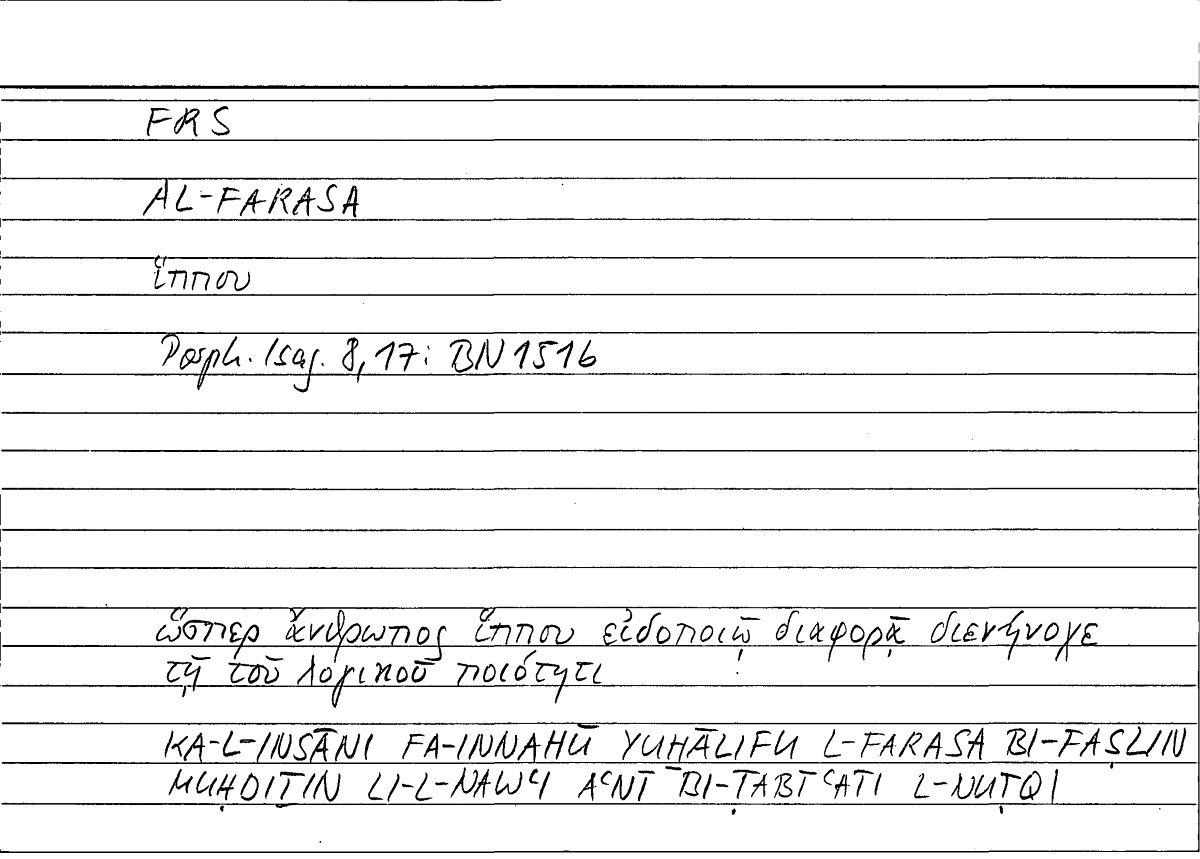 FRS
AL-FARASA
ἵππου
Porph. Isag. 8,17: BN 1516
ὥσπερ ἄνθρωπος ἵππου εἰδοποιῷ διαφορᾷ διενήνοχε
τῇ τοῦ λογικοῦ ποιότητι
KA-L-INSĀNI FA-INNAHŪ YUḪĀLIFU L-FARASA BI-FAṢLIN
MUḤDIṮIN LI-L-NAWʿI AʿNĪ BI-ṬABĪʿATI L-NUṬQI